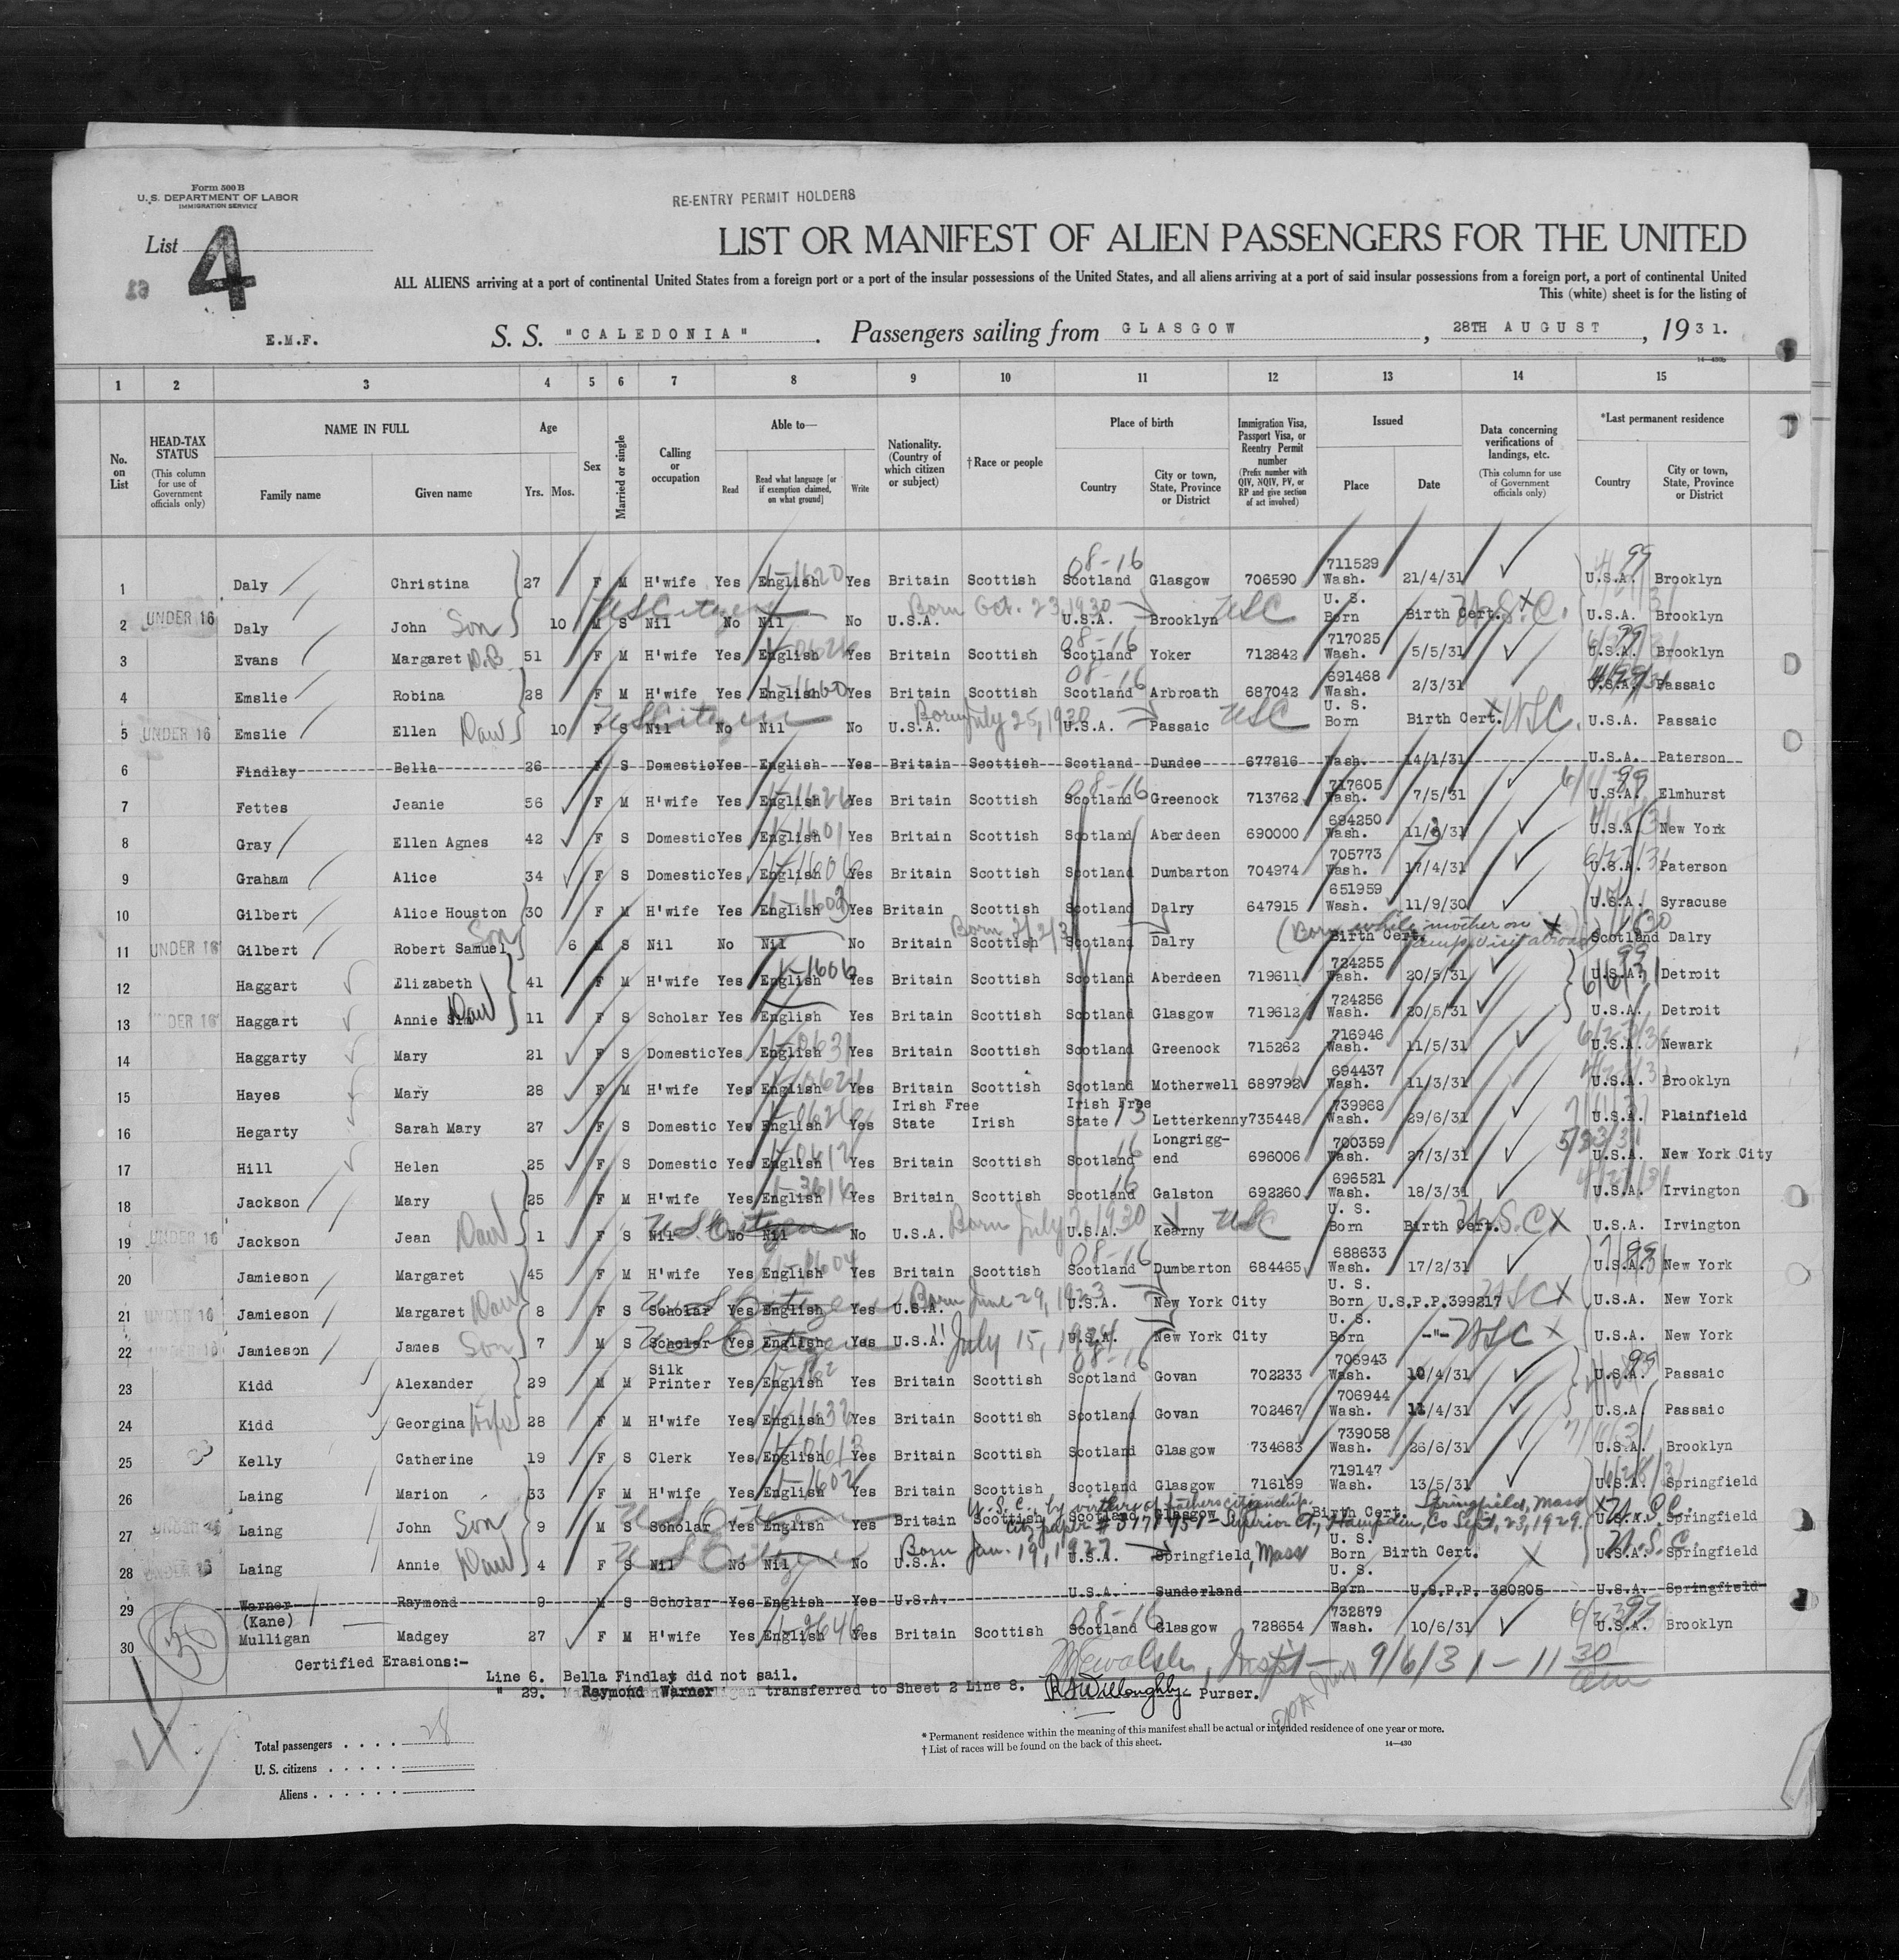 Form 500 B
U.S. DEPARTMENT OF LABOR
IMMIGRATION SERVICE
RE-ENTRY PERMIT HOLDERS
List 4
LIST OR MANIFEST OF ALIEN PASSENGERS FOR THE UNITED
ALL ALIENS arriving at a port of continental United States from a foreign port or a port of the insular possessions of the United States, and all aliens arriving at a port of said insular possessions from a foreign port, a port of continental United
This (white) sheet is for the listing of
E.M.F. S. S. "CALEDONIA". Passengers sailing from GLASGOW, 28TH AUGUST, 1931.
1 2 3 4 5 6 7 8 9 10 11 12 13 14 15
No. on List
HEAD-TAX STATUS (This column for use of Government officials only)
NAME IN FULL Family name Given name
Age Yrs. Mos.
Sex
Married or single
Calling or occupation
Able to— Read Read what language [or if exemption claimed, on what ground] Write
Nationality. (Country of which citizen or subject)
†Race or people
Place of birth Country City or town, State, Province or District
Immigration Visa, Passport Visa, or Reentry Permit number (Prefix number with QIV, NQIV, PV, or RP and give section of act involved)
Issued Place Date
Data concerning verifications of landings, etc. (This column for use of Government officials only)
*Last permanent residence Country City or town, State, Province or District
1 Daly Christina 27 F M H'wife Yes English Yes Britain Scottish Scotland Glasgow 706590 711529 Wash. 21/4/31 U.S.A. Brooklyn
2 UNDER 16 Daly John Son 10 M S Nil No Nil No U.S.A. Born Oct. 23, 1930 U.S.A. Brooklyn USC U. S. Born Birth Cert. U.S.C. U.S.A. Brooklyn
3 Evans Margaret 51 F M H'wife Yes English Yes Britain Scottish Scotland Yoker 712842 717025 Wash. 5/5/31 U.S.A. Brooklyn
4 Emslie Robina 28 F M H'wife Yes English Yes Britain Scottish Scotland Arbroath 687042 691468 Wash. 2/3/31 U.S.A. Passaic
5 UNDER 16 Emslie Ellen Dau 10 F S Nil No Nil No U.S.A. Born July 25, 1930 U.S.A. Passaic USC U. S. Born Birth Cert. USC. U.S.A. Passaic
6 Findlay Bella 26 F S Domestic Yes English Yes Britain Scottish Scotland Dundee 677816 Wash. 14/1/31 U.S.A. Paterson
7 Fettes Jeanie 56 F M H'wife Yes English Yes Britain Scottish Scotland Greenock 713762 717605 Wash. 7/5/31 U.S.A. Elmhurst
8 Gray Ellen Agnes 42 F S Domestic Yes English Yes Britain Scottish Scotland Aberdeen 690000 694250 Wash. 11/3/31 U.S.A. New York
9 Graham Alice 34 F S Domestic Yes English Yes Britain Scottish Scotland Dumbarton 704974 705773 Wash. 17/4/31 U.S.A. Paterson
10 Gilbert Alice Houston 30 F M H'wife Yes English Yes Britain Scottish Scotland Dalry 647915 651959 Wash. 11/9/30 U.S.A. Syracuse
11 UNDER 16 Gilbert Robert Samuel Son 6 M S Nil No Nil No Britain Scottish Scotland Dalry Birth Cert. (Born while mother on temp. visit abroad) Scotland Dalry
12 Haggart Elizabeth 41 F M H'wife Yes English Yes Britain Scottish Scotland Aberdeen 719611 724255 Wash. 20/5/31 U.S.A. Detroit
13 UNDER 16 Haggart Annie Sim Dau 11 F S Scholar Yes English Yes Britain Scottish Scotland Glasgow 719612 724256 Wash. 20/5/31 U.S.A. Detroit
14 Haggarty Mary 21 F S Domestic Yes English Yes Britain Scottish Scotland Greenock 715262 716946 Wash. 11/5/31 U.S.A. Newark
15 Hayes Mary 28 F M H'wife Yes English Yes Britain Scottish Scotland Motherwell 689792 694437 Wash. 11/3/31 U.S.A. Brooklyn
16 Hegarty Sarah Mary 27 F S Domestic Yes English Yes Irish Free State Irish Irish Free State Letterkenny 735448 739968 Wash. 29/6/31 U.S.A. Plainfield
17 Hill Helen 25 F S Domestic Yes English Yes Britain Scottish Scotland Longrigg-end 696006 700359 Wash. 27/3/31 U.S.A. New York City
18 Jackson Mary 25 F M H'wife Yes English Yes Britain Scottish Scotland Galston 692260 696521 Wash. 18/3/31 U.S.A. Irvington
19 UNDER 16 Jackson Jean Dau 1 F S Nil No Nil No U.S.A. Born July 1930 U.S.A. Kearny USC U. S. Born Birth Cert. U.S.C. U.S.A. Irvington
20 Jamieson Margaret 45 F M H'wife Yes English Yes Britain Scottish Scotland Dumbarton 684465 688633 Wash. 17/2/31 U.S.A. New York
21 UNDER 16 Jamieson Margaret Dau 8 F S Scholar Yes English Yes U.S.A. Born June 29, 1923 U.S.A. New York City U. S. Born U.S.P.P.399217 USC U.S.A. New York
22 UNDER 16 Jamieson James Son 7 M S Scholar Yes English Yes U.S.A. " July 15, 1924 U.S.A. New York City U. S. Born -"- USC U.S.A. New York
23 Kidd Alexander 29 M M Silk Printer Yes English Yes Britain Scottish Scotland Govan 702233 706943 Wash. 10/4/31 U.S.A. Passaic
24 Kidd Georgina Wife 28 F M H'wife Yes English Yes Britain Scottish Scotland Govan 702467 706944 Wash. 11/4/31 U.S.A. Passaic
25 Kelly Catherine 19 F S Clerk Yes English Yes Britain Scottish Scotland Glasgow 734683 739058 Wash. 26/6/31 U.S.A. Brooklyn
26 Laing Marion 33 F M H'wife Yes English Yes Britain Scottish Scotland Glasgow 716189 719147 Wash. 13/5/31 U.S.A. Springfield
U.S.C. by virtue of fathers citizenship. Springfield, Mass
27 UNDER 16 Laing John Son 9 M S Scholar Yes English Yes Britain Scottish Scotland Glasgow Birth Cert. U.S.A. Springfield
Superior Ct., Hampden, Co Sept, 23, 1929.
28 UNDER 16 Laing Annie Dau 4 F S Nil No Nil No U.S.A. Born Jan. 19, 1927 U.S.A. Springfield, Mass U. S. Born Birth Cert. U.S.C. U.S.A. Springfield
29 Warner Raymond 9 M S Scholar Yes English Yes U.S.A. U.S.A. Sunderland U. S. Born U.S.P.P. 380205 U.S.A. Springfield
30 (Kane) Mulligan Madgey 27 F M H'wife Yes English Yes Britain Scottish Scotland Glasgow 728654 732879 Wash. 10/6/31 U.S.A. Brooklyn
Certified Erasions:-
Line 6. Bella Findlay did not sail.
" 29. Raymond Warner transferred to Sheet 2 Line 8. Purser.
9/6/31 - 11 30 am
Total passengers . . . . 28
U. S. citizens . . . . .
Aliens . . . . . .
* Permanent residence within the meaning of this manifest shall be actual or intended residence of one year or more.
† List of races will be found on the back of this sheet.
14—430